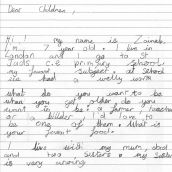 Dear Children,
Hi! my name is Zainab.
I'm 7 year old. I live in
London and I go to St
Judes C.E primary school.
my favourit subject at school
is
what do you want to be
when you get older do you
want to be a farmer teacher
or a bilder I'd love to
be one of them. What is
your favourit food.
I live with my mum, dad
and two sisters. my sister
is very annoing.